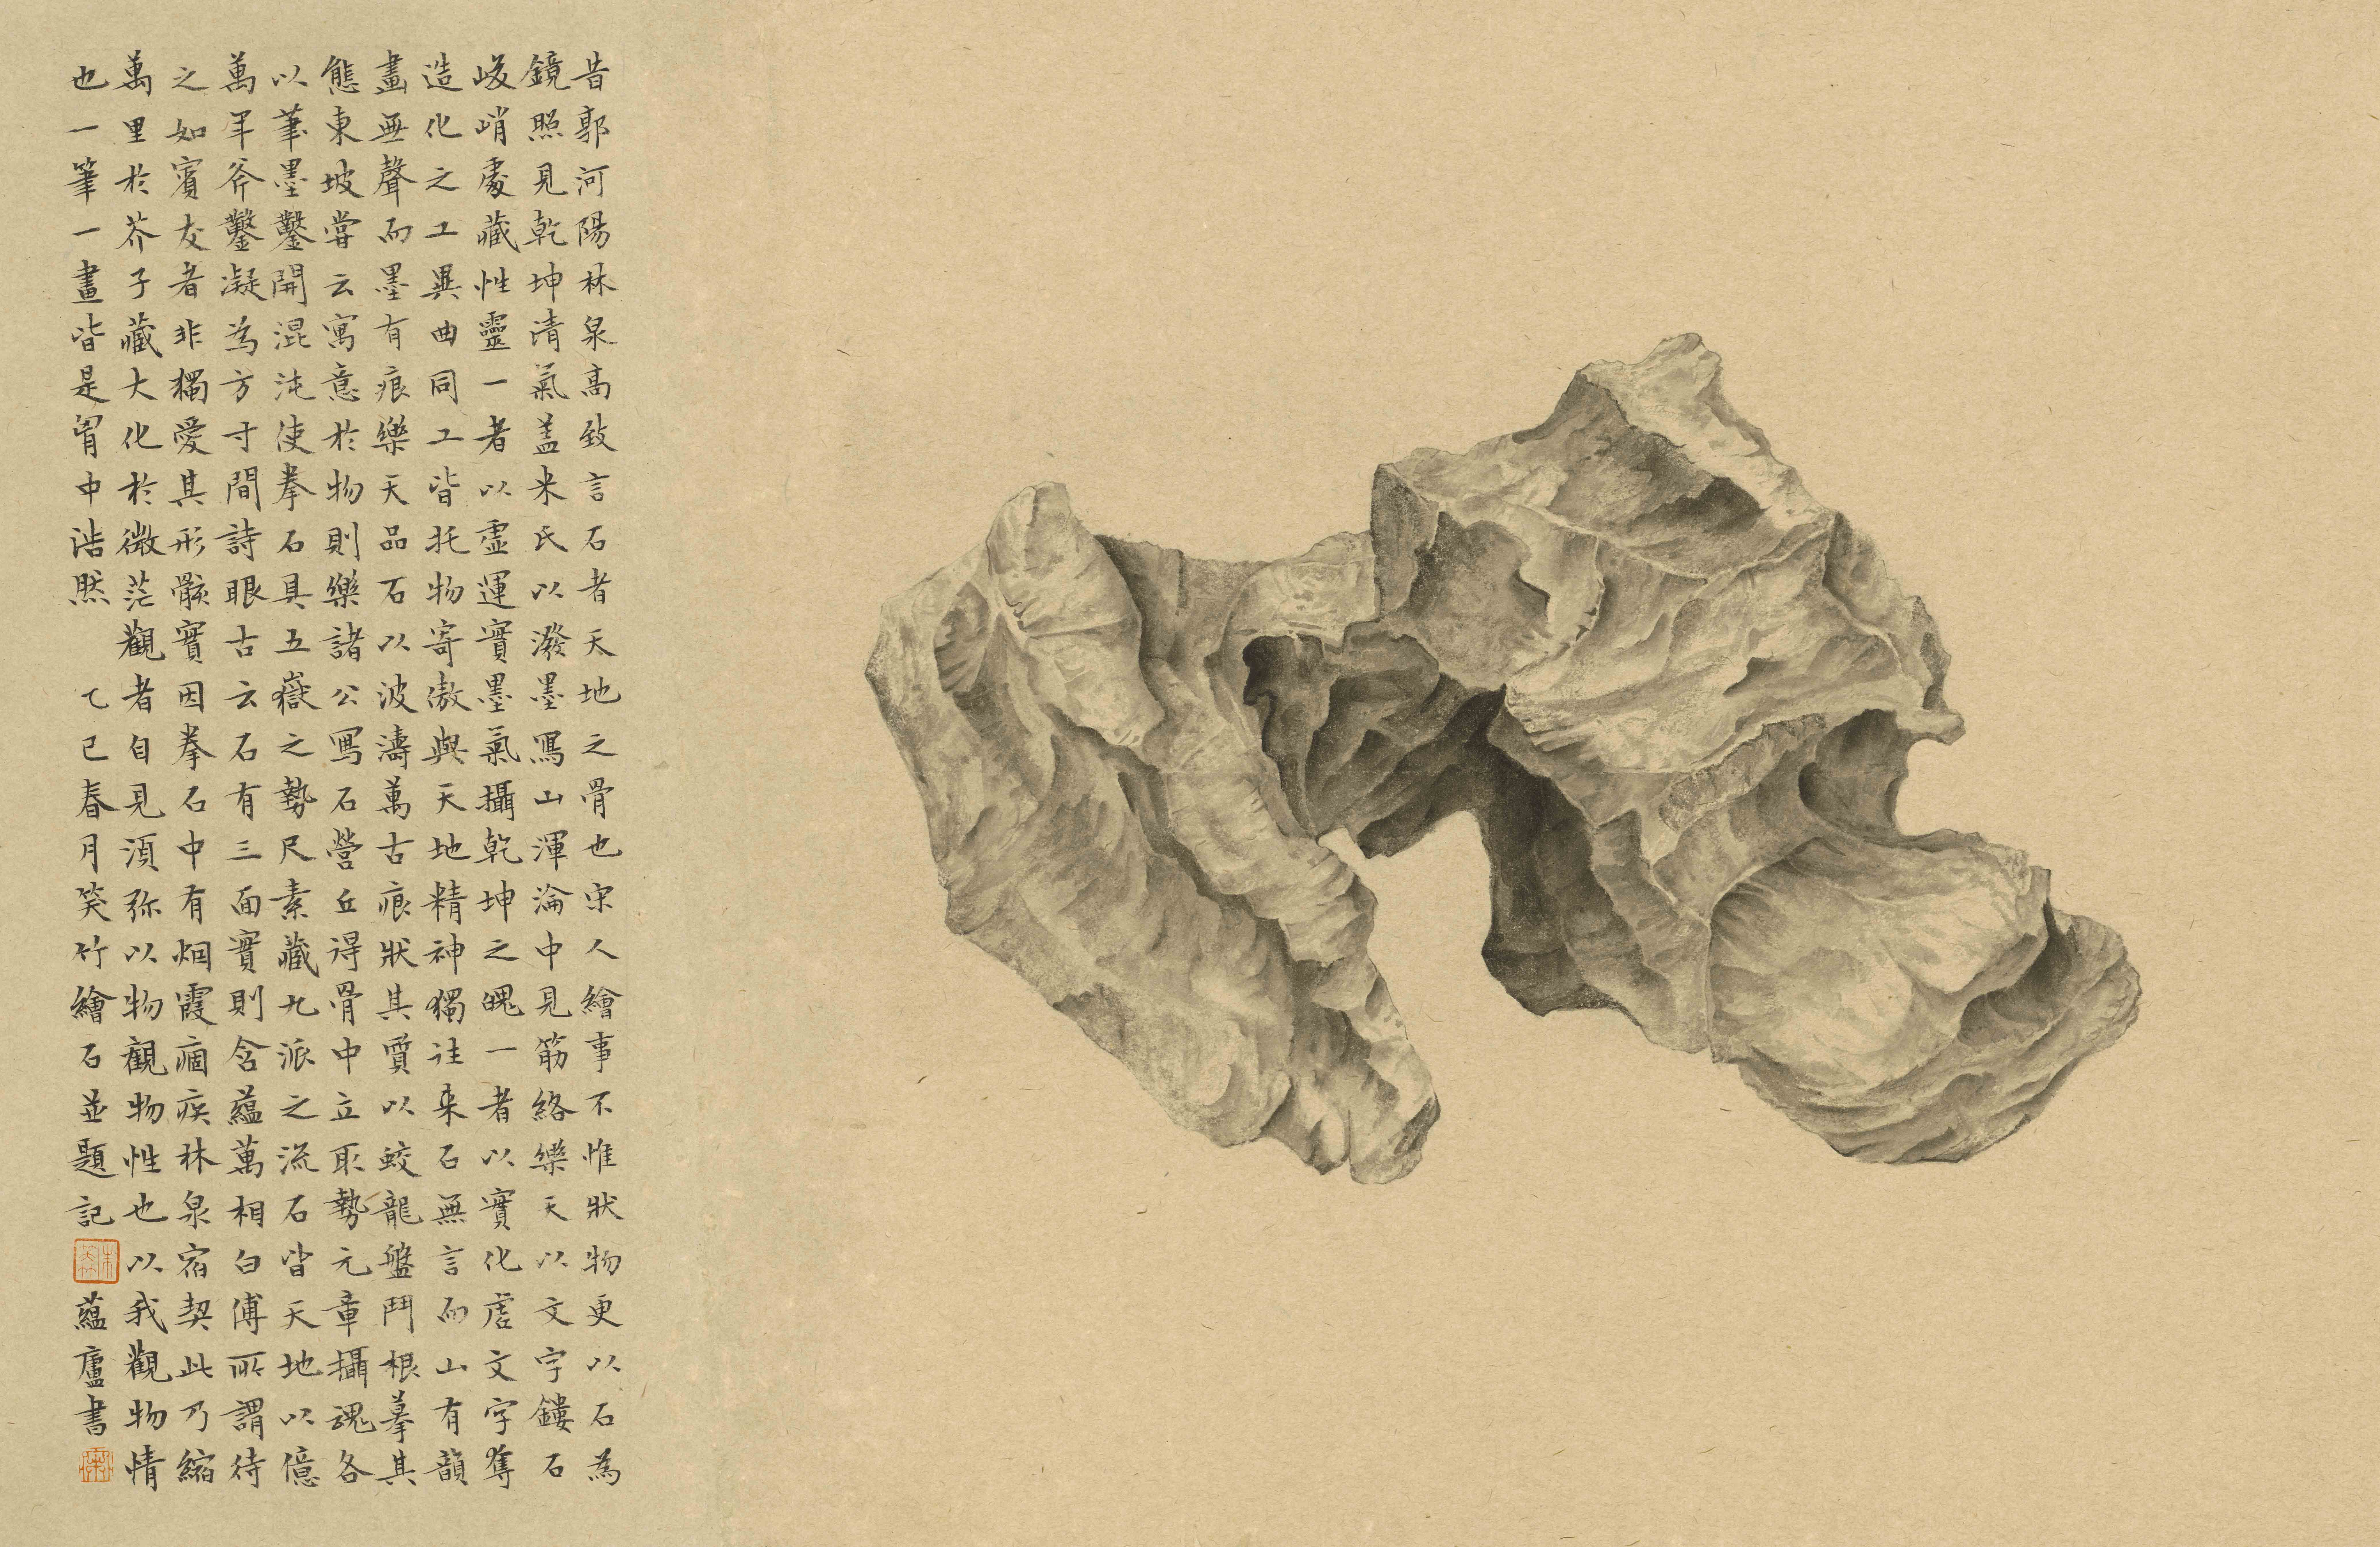 昔郭河陽林泉高致言石者天地之骨也宋人繪事不惟狀物更以石為
鏡照見乾坤清氣蓋米氏以潑墨寫山渾淪中見筋絡樂天以文字鏤石
峻峭處藏性靈一者以虛運實墨氣攝乾坤之魄一者以實化虛文字奪
造化之工異曲同工皆托物寄傲與天地精神獨往来石無言而山有韻
畫無聲而墨有痕樂天品石以波濤萬古痕狀其質以蛟龍盤鬥根摹其
態東坡嘗云寓意於物則樂諸公寫石營丘得骨中立取勢元章攝魂各
以筆墨鑿開混沌使拳石具五嶽之勢尺素藏九派之流石皆天地以億
萬年斧鑿凝為方寸間詩眼古云石有三面實則含蘊萬相白傅所謂待
之如賓友者非獨愛其形骸實因拳石中有烟霞痼疾林泉宿契此乃縮
萬里於芥子藏大化於微茫觀者自見須弥以物觀物性也以我觀物情
也一筆一畫皆是胷中浩然 乙巳春月笑竹繪石並題記
蘊廬書